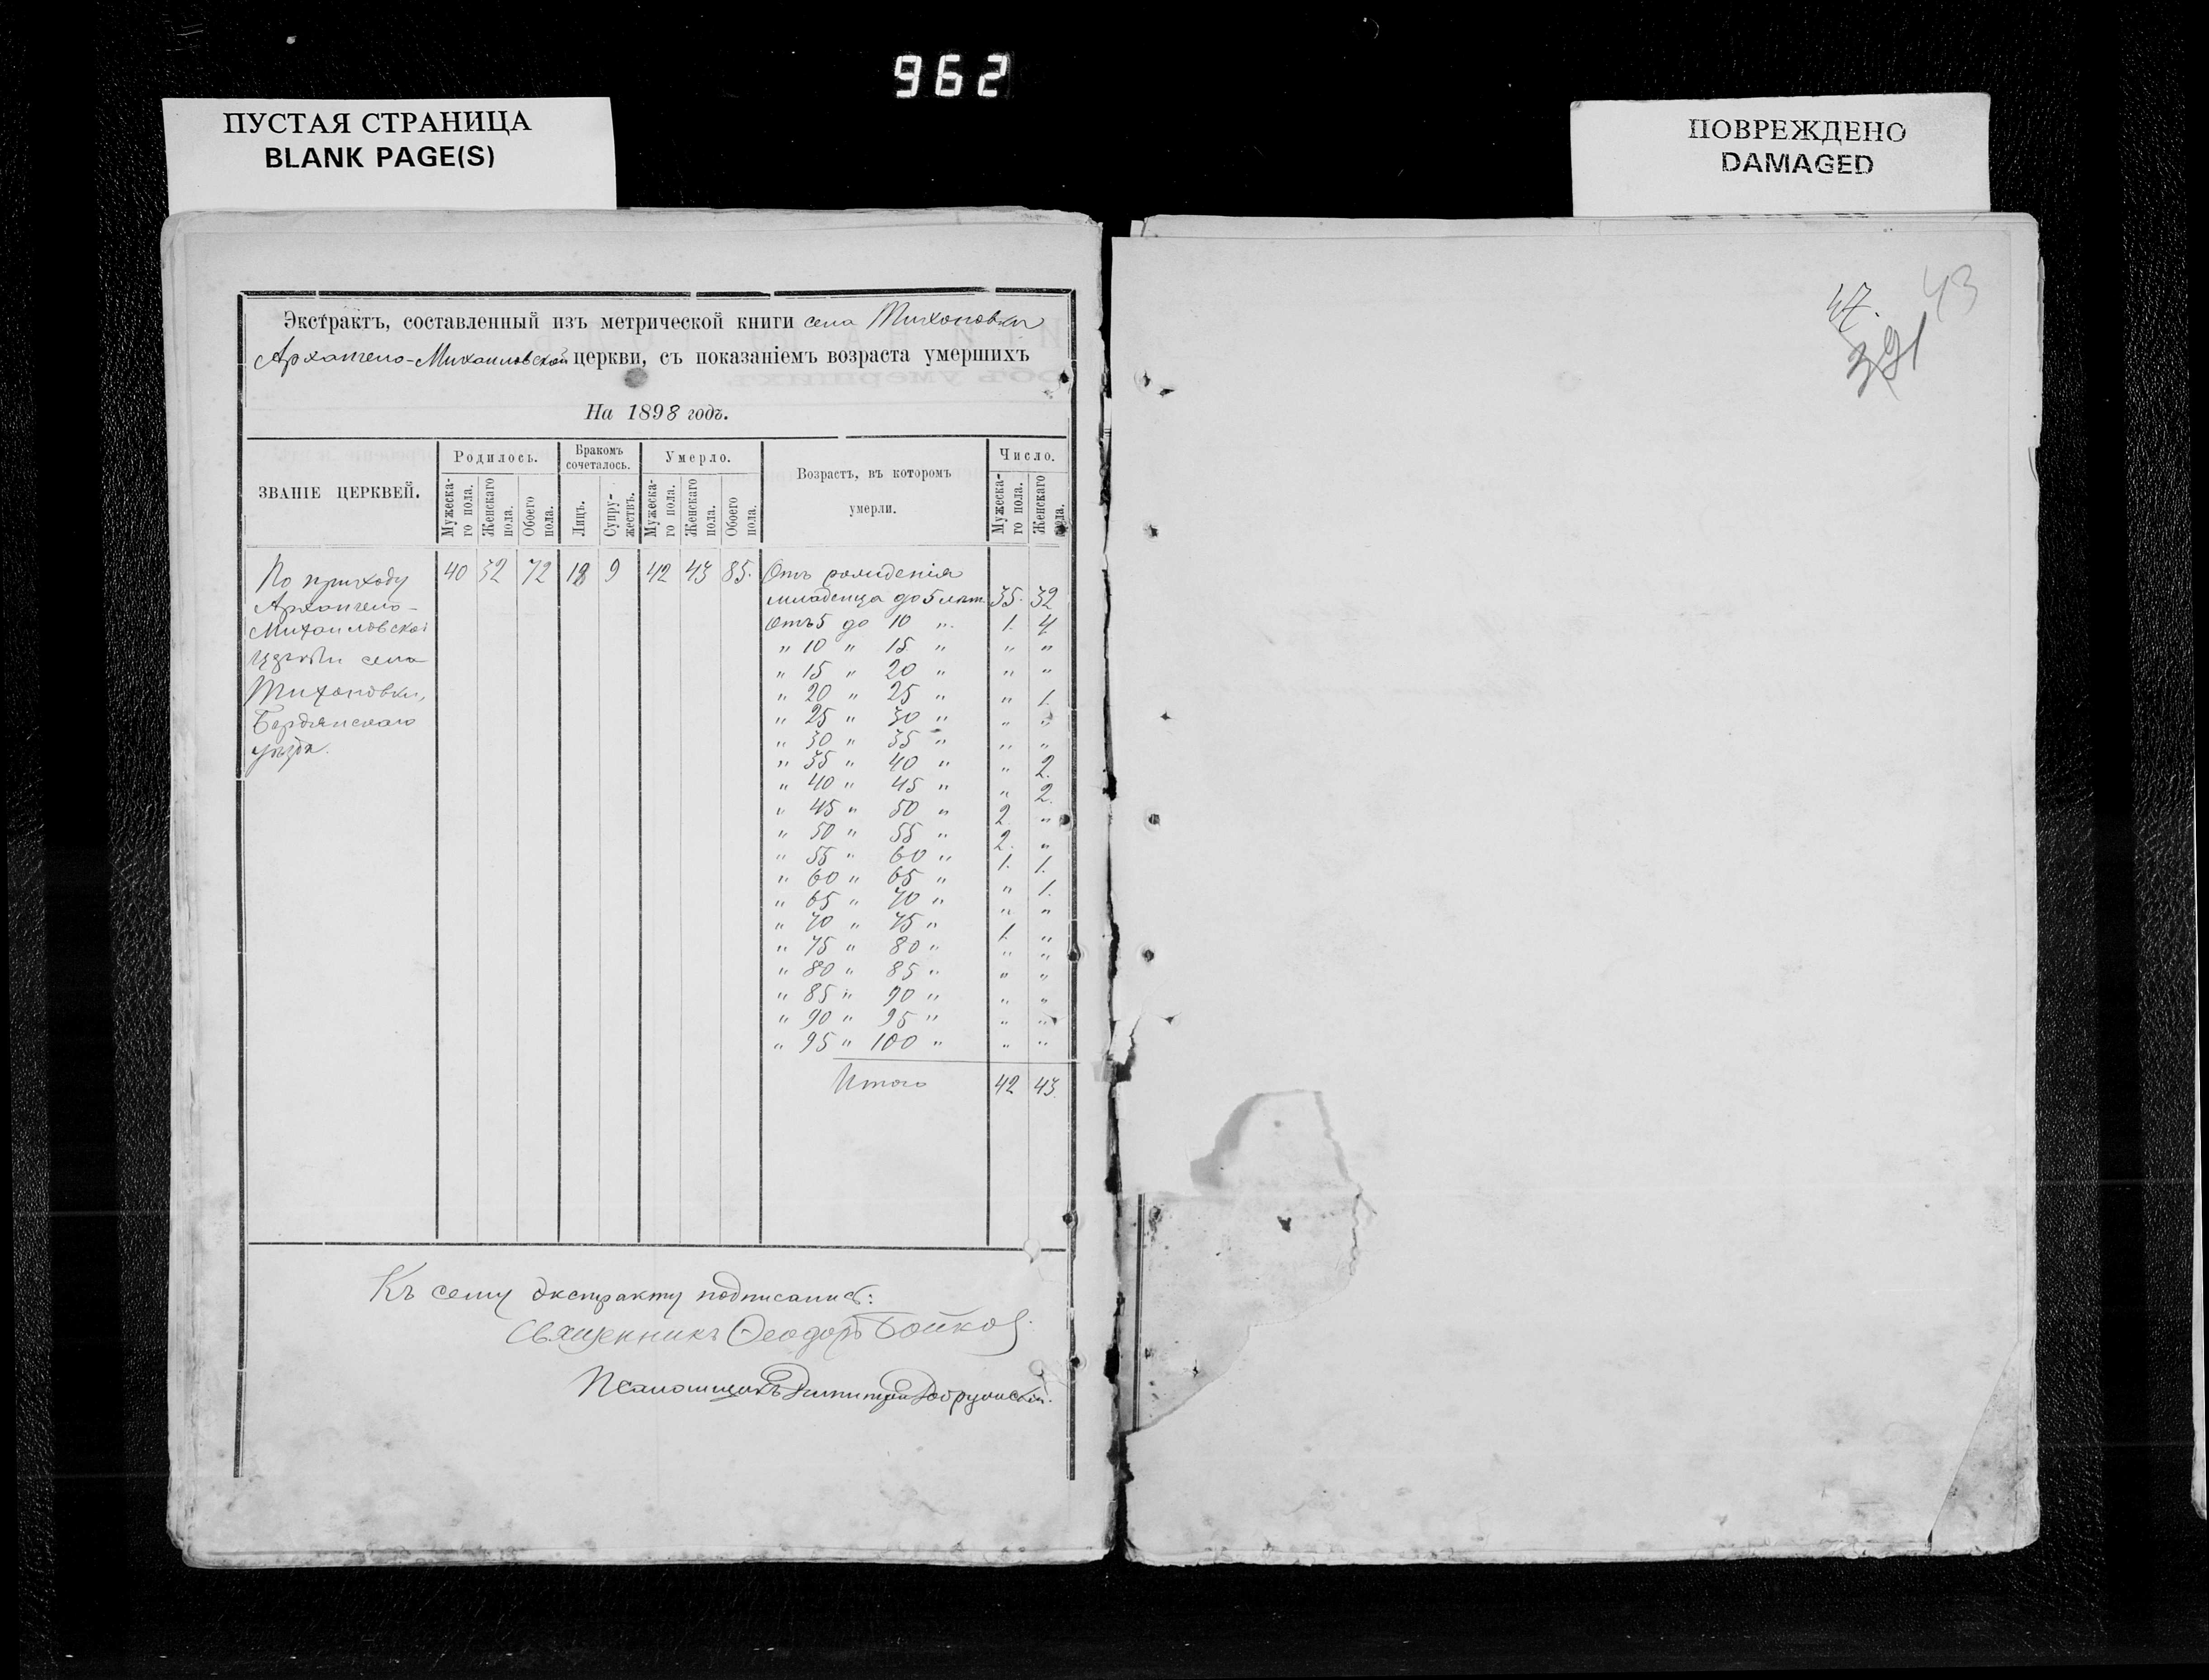 962
ПУСТАЯ СТРАНИЦА
BLANK PAGE(S)
ПОВРЕЖДЕНО
DAMAGED
Экстрактъ, составленный изъ метрической книги села Тихоновки
Архангело-Михаиловской церкви, съ показаніемъ возраста умершихъ
На 1898 годъ.
ЗВАНІЕ ЦЕРКВЕЙ. Родилось. Бракомъ сочеталось. Умерло. Возрастъ, въ которомъ умерли. Число.
Мужеска-го пола. Женскаго пола. Обоего пола. Лицъ. Супру-жествъ. Мужеска-го пола. Женскаго пола. Обоего пола. Мужеска-го пола. Женскаго пола.
По приходу 40 32 72 18 9 42 43 85. Отъ рожденія
Архангело- младенца до 5 лѣт. 35. 32
Михаиловской Отъ 5 до 10 " 1. 4
церкви села " 10 " 15 " " "
" 15 " 20 " " "
Тихоновки, " 20 " 25 " " 1.
Бердянскаго " 25 " 30 " " "
уѣзда. " 30 " 35 " " "
" 35 " 40 " " 2.
" 40 " 45 " " 2.
" 45 " 50 " 2. "
" 50 " 55 " 2. "
" 55 " 60 " 1. 1.
" 60 " 65 " " 1.
" 65 " 70 " " "
" 70 " 75 " 1. "
" 75 " 80 " " "
" 80 " 85 " " "
" 85 " 90 " " "
" 90 " 95 " " "
" 95 " 100 " " "
Итого 42 43.
Къ сему экстракту подписались:
Священникъ Ѳеодоръ Бойко
Псаломщикъ Димитрій
43
47.
391